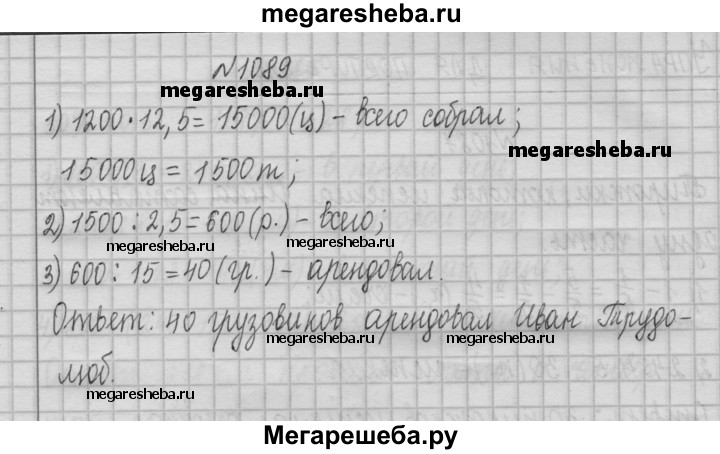 megaresheba.ru
№1089
megaresheba.ru
1) 1200·12,5=15000(ц) - всего собрал;
megaresheba.ru
15000ц = 1500т;
2) 1500 : 2,5=600(р.) - всего;
megaresheba.ru megaresheba.ru
3) 600 : 15 =40(гр.) - арендовал.
Ответ: 40 грузовиков арендовал Иван Трудо-
megaresheba.ru megaresheba.ru
люб.
megaresheba.ru
megaresheba.ru
Мегарешеба.ру